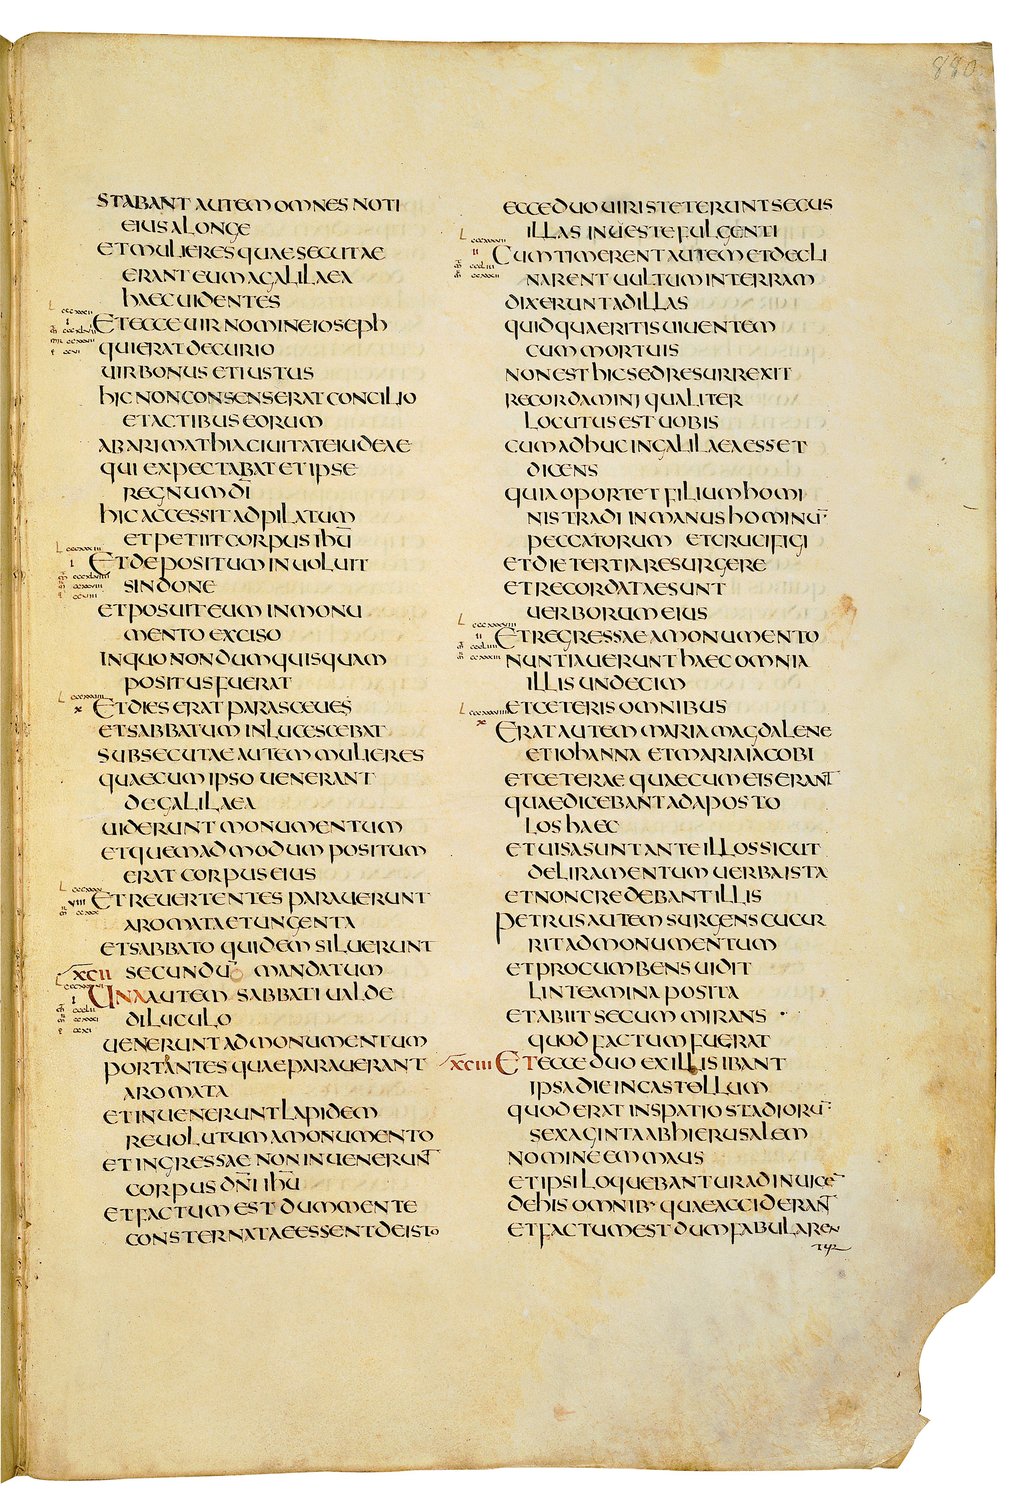 880
STABANT AUTEM OMNES NOTI
EIUS A LONGE
ET MULIERES QUAE SECUTAE
ERANT EUM A GALILAEA
HAEC UIDENTES
ET ECCE UIR NOMINE IOSEPH
QUI ERAT DECURIO
UIR BONUS ET IUSTUS
HIC NON CONSENSERAT CONCILIO
ET ACTIBUS EORUM
AB ARIMATHIA CIUITATE IUDEAE
QUI EXPECTABAT ET IPSE
REGNUM D̄I
HIC ACCESSIT AD PILATUM
ET PETIIT CORPUS IHŪ
ET DEPOSITUM INUOLUIT
SINDONE
ET POSUIT EUM IN MONU
MENTO EXCISO
IN QUO NONDUM QUISQUAM
POSITUS FUERAT
ET DIES ERAT PARASCEUES
ET SABBATUM INLUCESCEBAT
SUBSECUTAE AUTEM MULIERES
QUAE CUM IPSO UENERANT
DE GALILAEA
UIDERUNT MONUMENTUM
ET QUEMADMODUM POSITUM
ERAT CORPUS EIUS
ET REUERTENTES PARAUERUNT
AROMATA ET UNGENTA
ET SABBATO QUIDEM SILUERUNT
XCII SECUNDŪ MANDATUM
UNA AUTEM SABBATI UALDE
DILUCULO
UENERUNT AD MONUMENTUM
PORTANTES QUAE PARAUERANT
AROMATA
ET INUENERUNT LAPIDEM
REUOLUTUM A MONUMENTO
ET INGRESSAE NON INUENERUNT
CORPUS DN̄I IHŪ
ET FACTUM EST DUM MENTE
CONSTERNATAE ESSENT DE ISTO
ECCE DUO UIRI STETERUNT SECUS
ILLAS IN UESTE FULGENTI
CUM TIMERENT AUTEM ET DECLI
NARENT UULTUM IN TERRAM
DIXERUNT AD ILLAS
QUID QUAERITIS UIUENTEM
CUM MORTUIS
NON EST HIC SED RESURREXIT
RECORDAMINI QUALITER
LOCUTUS EST UOBIS
CUM ADHUC IN GALILAEA ESSET
DICENS
QUIA OPORTET FILIUM HOMI
NIS TRADI IN MANUS HOMINŪ
PECCATORUM ET CRUCIFIGI
ET DIE TERTIA RESURGERE
ET RECORDATAE SUNT
UERBORUM EIUS
ET REGRESSAE A MONUMENTO
NUNTIAUERUNT HAEC OMNIA
ILLIS UNDECIM
ET CETERIS OMNIBUS
ERAT AUTEM MARIA MAGDALENE
ET IOHANNA ET MARIA IACOBI
ET CETERAE QUAE CUM EIS ERANT
QUAE DICEBANT AD APOSTO
LOS HAEC
ET UISA SUNT ANTE ILLOS SICUT
DELIRAMENTUM UERBA ISTA
ET NON CREDEBANT ILLIS
PETRUS AUTEM SURGENS CUCUR
RIT AD MONUMENTUM
ET PROCUMBENS UIDIT
LINTEAMINA POSITA
ET ABIIT SECUM MIRANS
QUOD FACTUM FUERAT
XCIII ET ECCE DUO EX ILLIS IBANT
IPSA DIE IN CASTELLUM
QUOD ERAT IN SPATIO STADIORŪ
SEXAGINTA AB HIERUSALEM
NOMINE EMMAUS
ET IPSI LOQUEBANTUR AD INUICĒ
DE HIS OMNIB· QUAE ACCIDERANT
ET FACTUM EST DUM FABULAREN
TUR